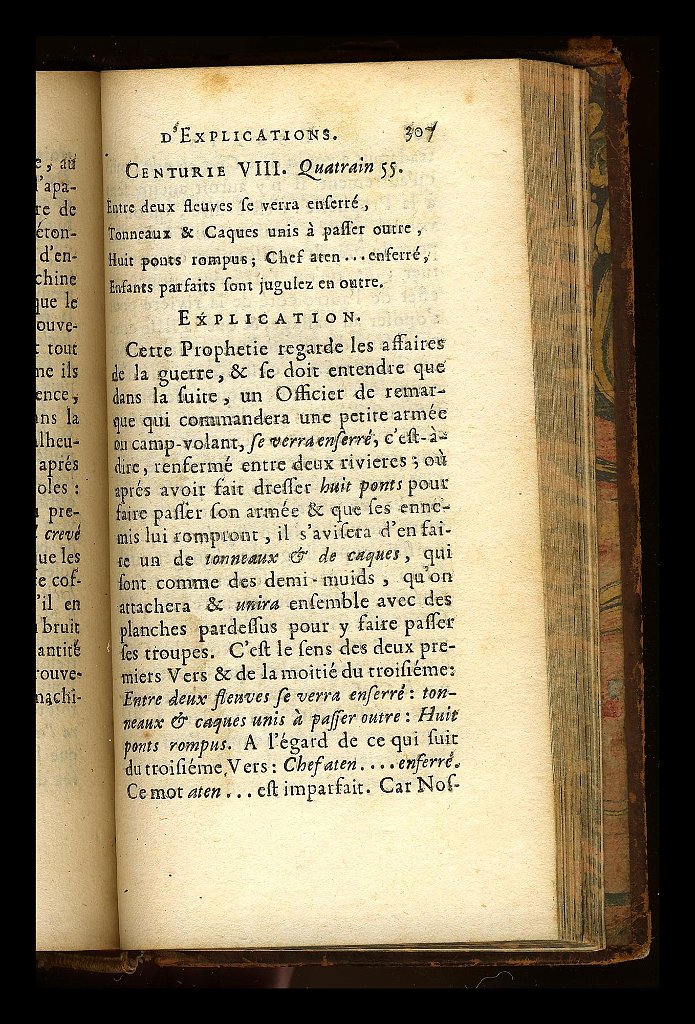 e, au
l'apa-
re de
éton-
d'en-
chine
que le
ouve-
tout
ne ils
ence,
ans la
lheu-
aprés
oles :
pre-
crevé
ue les
e cof-
'il en
bruit
antité
rouve-
machi-
D'EXPLICATIONS. 307
CENTURIE VIII. Quatrain 55.
Entre deux fleuves ſe verra enſerré,
Tonneaux & Caques unis à paſſer outre,
Huit ponts rompus; Chef aten...enferré,
Enfants parfaits ſont jugulez en outre.
EXPLICATION.
Cette Prophetie regarde les affaires
de la guerre, & ſe doit entendre que
dans la ſuite, un Officier de remar-
que qui commandera une petite armée
ou camp-volant, ſe verra enſerré, c'eſt-à-
dire, renfermé entre deux rivieres; où
aprés avoir fait dreſſer huit ponts pour
faire paſſer ſon armée & que ſes enne-
mis lui rompront, il s'aviſera d'en fai-
re un de tonneaux & de caques, qui
ſont comme des demi-muids, qu'on
attachera & unira enſemble avec des
planches pardeſſus pour y faire paſſer
ſes troupes. C'eſt le ſens des deux pre-
miers Vers & de la moitié du troiſiéme:
Entre deux fleuves ſe verra enſerré: ton-
neaux & caques unis à paſſer outre: Huit
ponts rompus. A l'égard de ce qui ſuit
du troiſiéme Vers: Chef aten....enferré.
Ce mot aten... eſt imparfait. Car Noſ-